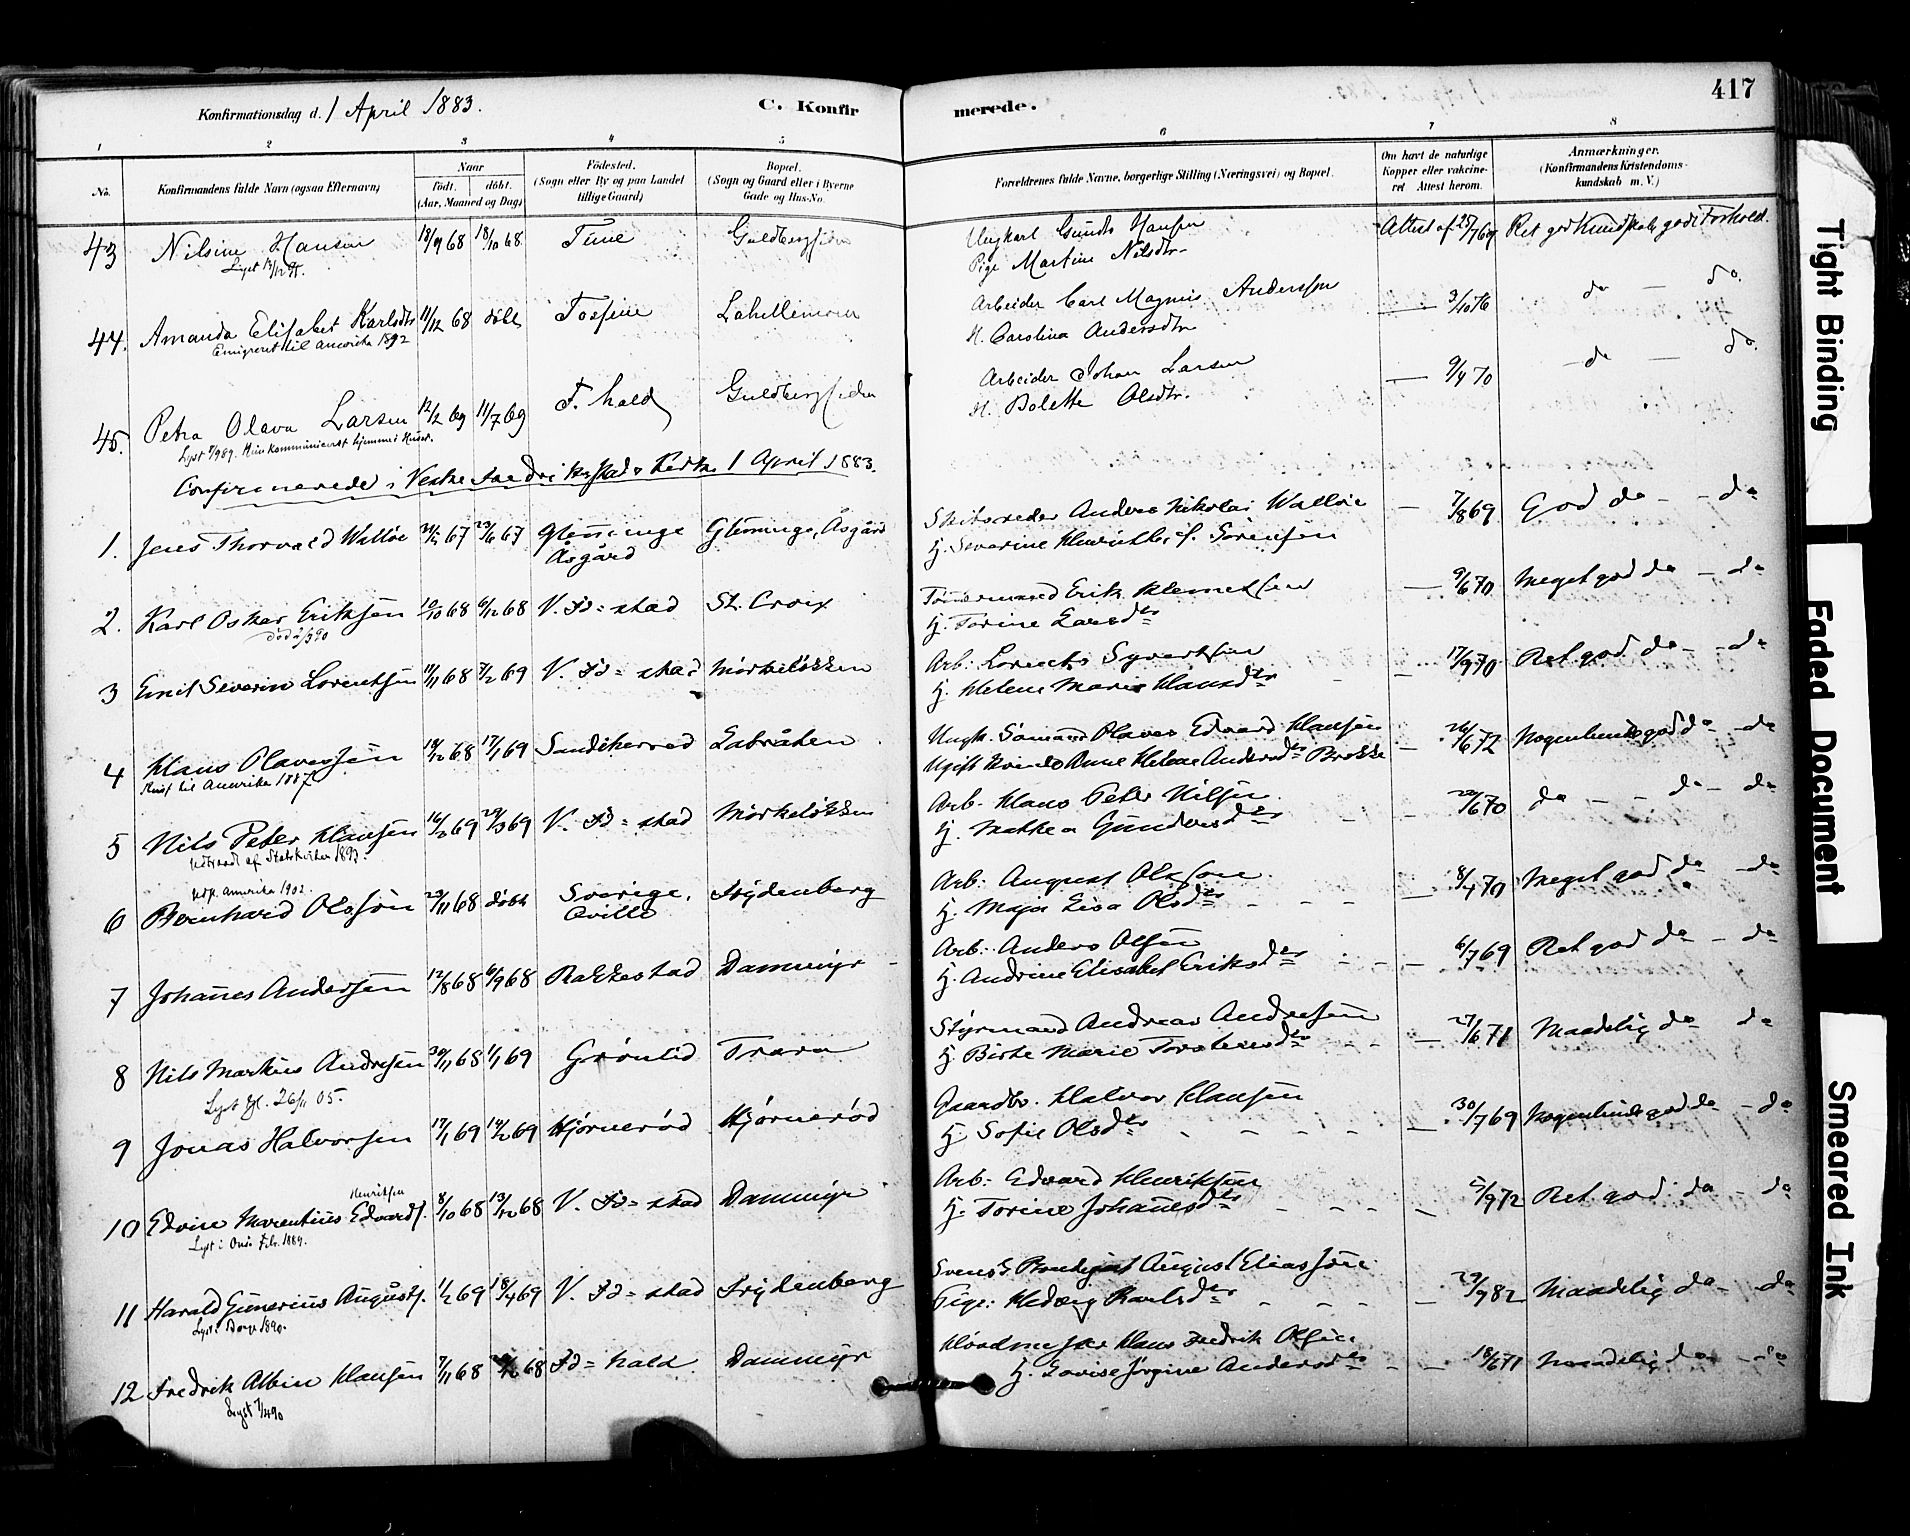 417
Konfirmationsdag d. 1 April 1883. C. Konfirmerede.
1 2 3 4 5 6 7 8
No. Konfirmandens fulde Navn (ogsaa Efternavn) Naar født. døbt. (Aar, Maaned og Dag) Fødested. (Sogn eller By og paa Landet tillige Gaard) Bopæl. (Sogn og Gaard eller i Byerne Gade og Hus-No. Forældrenes fulde Navne, borgerlige Stilling (Næringsvei) og Bopæl. Om havt de naturlige Kopper eller vakcineret Attest herom. Anmærkninger. (Konfirmandens Kristendomskundskab m. V.)
43 Nilsine Hansen 18/9 68 18/10 68 Tune Guldbergsiden Ungkarl Hansen Attest af Ret god Kundskab, godt Forhold.
Pige Martine Nilsdtr.
44. Amanda Elisabet Karlsdtr 11/12 68 døbt Lahellemoen Arbeider Carl Magnus Andersson 3/10 76 do — do.
Emigreret til Amerika 1892 H. Carolina Andersdtr
45. Petra Olava Larsen 12/2 69 11/7 69 F. hald Guldbergsiden Arbeider Johan Larsen — 9/9 70 — do — do.
H. Bolette Olsdtr.
Confirmerede i Vestre Fredrikstads Kirke 1 April 1883.
1. Jens Thorvald Walløe 67 23/6 67 Glemminge Glemminge, Åsgård Skibsreder Anders Nikolai Walløe — 7/8 69 God do - - do
Åsgård H. Severine f. Sørensen
2. Karl Oskar Eriksen 10/10 68 6/12 68 V. Fd=stad St. Croix Tømmermand Erik Klemetsen — 9/6 70 Meget god do - do
H. Torine Larsdtr
3 Emil Severin Lorentsen 11/11 68 7/2 69 V. Fd=stad Mørkeløkken Arb: Lorents Syvertsen — 17/9 70 Ret god do - - do
H. Helene Marie Hansdtr
4 Klaus Olavessen 19/12 68 17/1 69 Sandikerred Labråten Ungk. Sømand Olaves Edvard Klausen — 26/6 72 Nogenlunde god do - do
Reist til Amerika 1887 Ugift Kvinde Anne Helene Andersdtr Brekke
5 Nils Peter Klausen 69 29/3 69 V. Fd=stad Mørkeløkken Arb. Klaus Peter Nilsen - 70 do - - do - do
Udtraadt af Statskirken 1893. H. Mathea Gundersdtr
Udfl. Amerika 1902.
6 Bernhard Olsson 29/11 68 døbt Sverige, Frydenberg Arb: August Olsson — 8/7 70 Meget god do - do
Qville H. Maja Lisa Olsdtr
7 Johannes Andersen 12/8 68 6/9 68 Rakkestad Dammyr Arb: Anders Olsen — 6/7 69 Ret god do - do
H. Andrine Elisabet Eriksdtr
8 Nils Markus Andresen 30/11 68 1/1 69 Grønlid Trara Styrmand Andreas Andresen — 27/6 71 Maadelig do do
Lyst Gl. 26/11 05. H. Birte Marie Torstensdtr
9 Jonas Halvorsen 17/1 69 14/2 69 Hjørnerød Hjørnerød Gaardbr. Halvor Klausen — 30/7 69 Nogenlunde god do - do
H. Sofie Olsdtr
Henriksen
10 Edvin Marentius Edvards. 8/10 68 13/12 68 V. Fd=stad Dammyr Arb: Edvard Henriksen — 5/9 72 Ret god do - do
Lyst i Onsø Febr. 1889. H. Torine Johannesdtr
11 Harald Gunerius Augusts. 1/2 69 18/4 69 V. Fd=stad Frydenberg Svensk August Eliassen — 29/9 82 Maadelig do - do
Lyst i Borge 1890. Pige: Hedvig Karlsdtr
12 Fredrik Albin Klausen 7/11 68 68 Fd=hald Dammyr Klaus Fredrik Olsen — 18/6 71 Maadelig do - do
Lyst 7/4 90 H. Lovise Jørgine Andersdtr
Tight Binding
Faded Document
Smeared Ink